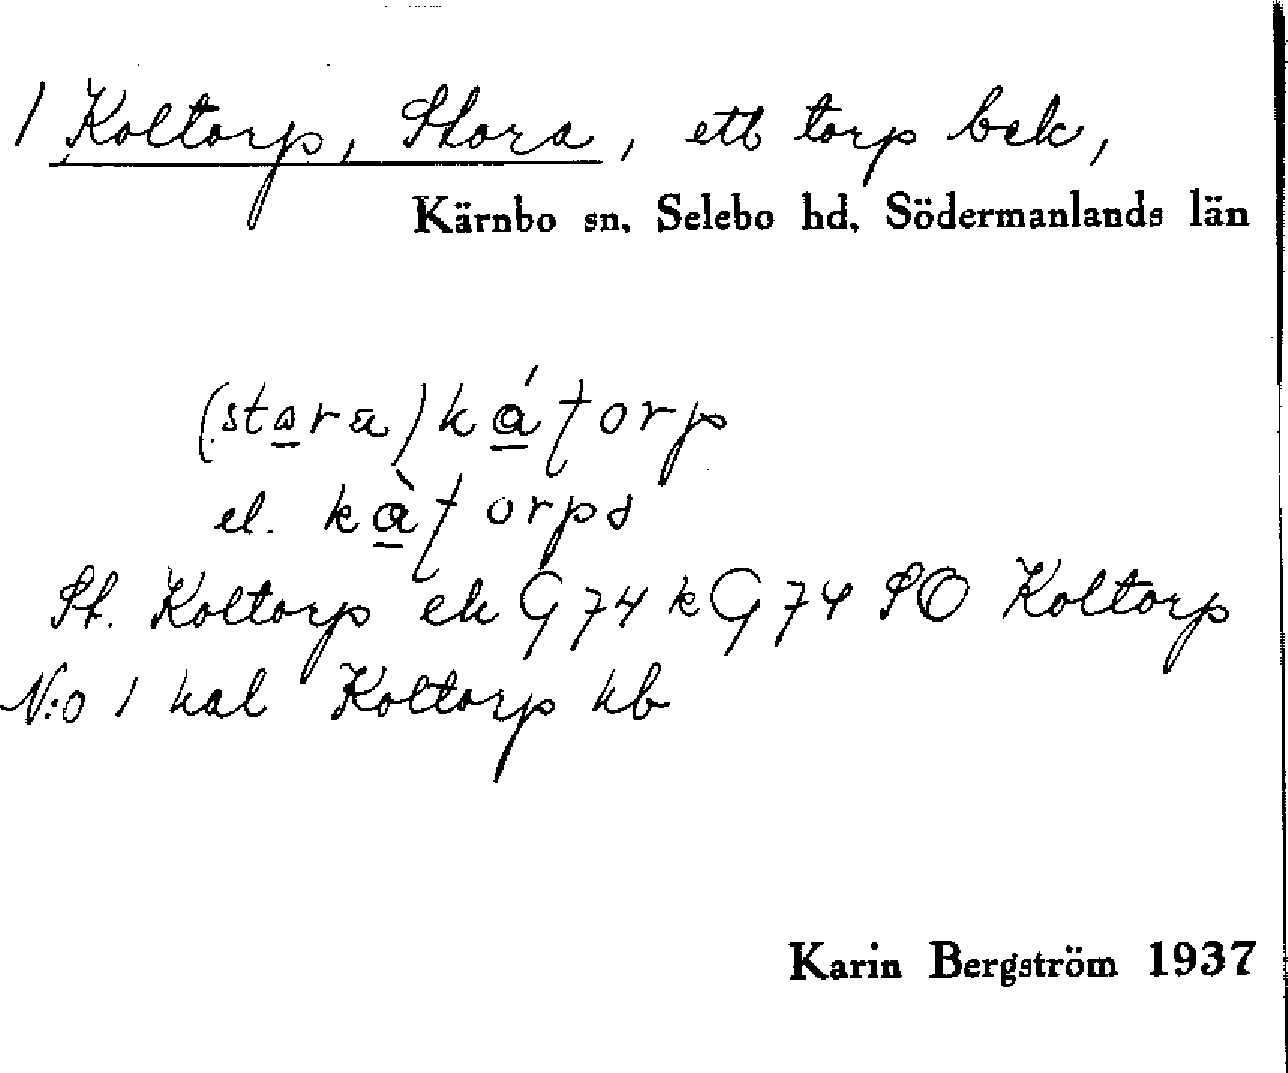 1 Koltorp, Stora, ett torp bek,
Kärnbo sn. Selebo hd. Södermanlands län
(stara) kátorp
el. kàtorps
St. Koltorp ek G 74 k G 74 SO Koltorp
N:o 1 kal Koltorp kb
Karin Bergström 1937